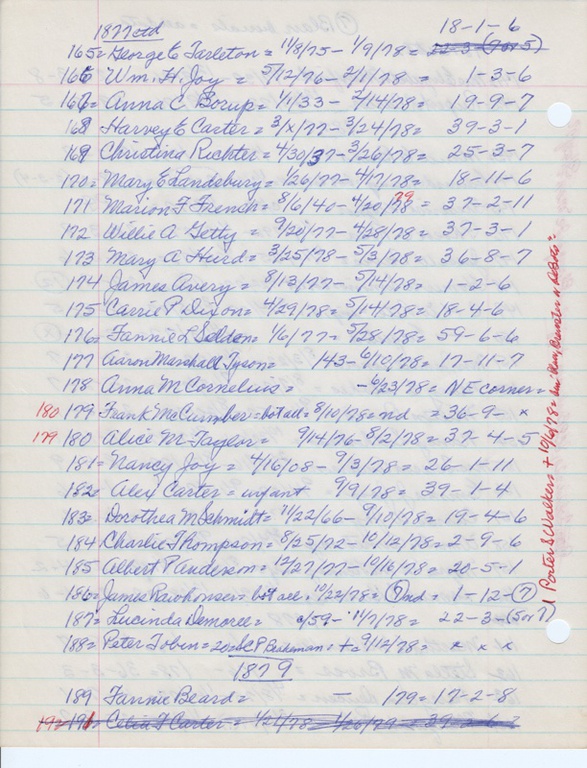 1877 ctd
18-1-6
165= George E Tarleton = 11/8/75 - 1/9/78 = 22-3-(7 or 5)
166 Wm. H. Joy = 5/12/76 - 2/1/78 = 1-3-6
167= Anna C Borup = 1/1/33 - 2/14/78 = 19-9-7
168 Harvey E Carter = 3/x/77 - 3/24/78 = 39-3-1
169 Christina Richter = 4/30/37 - 3/26/78 = 25-3-7
170= Mary E Landsbury = 1/26/77 - 4/17/78 = 18-11-6
171 Marion F French = 8/6/40 - 4/20/78 79 = 37-2-11
172 Willie A Getty = 9/20/77 - 4/28/78 = 37-3-1
173 Mary A Hurd = 3/25/78 - 5/3/78 = 36-8-7
174 James Avery = 8/13/77 - 5/14/78 = 1-2-6
175 Carrie P Dixon = 4/29/78 = 5/14/78 = 18-4-6
176= Fannie L Selden = 1/6/77 = 5/28/78 = 59-6-6
177 Aaron Marshall Tyson = 143 - 6/10/78 = 17-11-7
178 Anna M Cornelius = - 6/23/78 = NE corner =
180 179 Frank McCumber = bot ad = 8/10/78 = nd = 36-9- x
179 180 Alice M Taylor = 9/14/76 - 8/2/78 = 37-4-5
181= Nancy Joy = 4/16/08 - 9/3/78 = 26-1-11
182= Alex Carter = infant 9/9/78 = 39-1-4
183= Dorothea M Schmidt = 11/22/66 - 9/10/78 = 19-4-6
184 Charlie Thompson = 8/25/72 - 10/12/78 = 2-9-6
185 Albert P Anderson = 12/27/77 - 10/16/78 = 20-5-1
186= James Rawhouser = bot ad = 10/22/78 = (?) nd = 1-12-(?)
187= Lucinda Demoree = c/59 - 11/7/78 = 22-3-(5 or 7)
188= Peter Tobin = 20= SCP Brakeman = +c 9/12/78 = x x x
1879
189 Fannie Beard = - 179 = 17-2-8
192= 191 Celia F Carter = 1/21/78 = 1/20/79 = 39-2-6
Porter S Walkers + 10/6/78 =